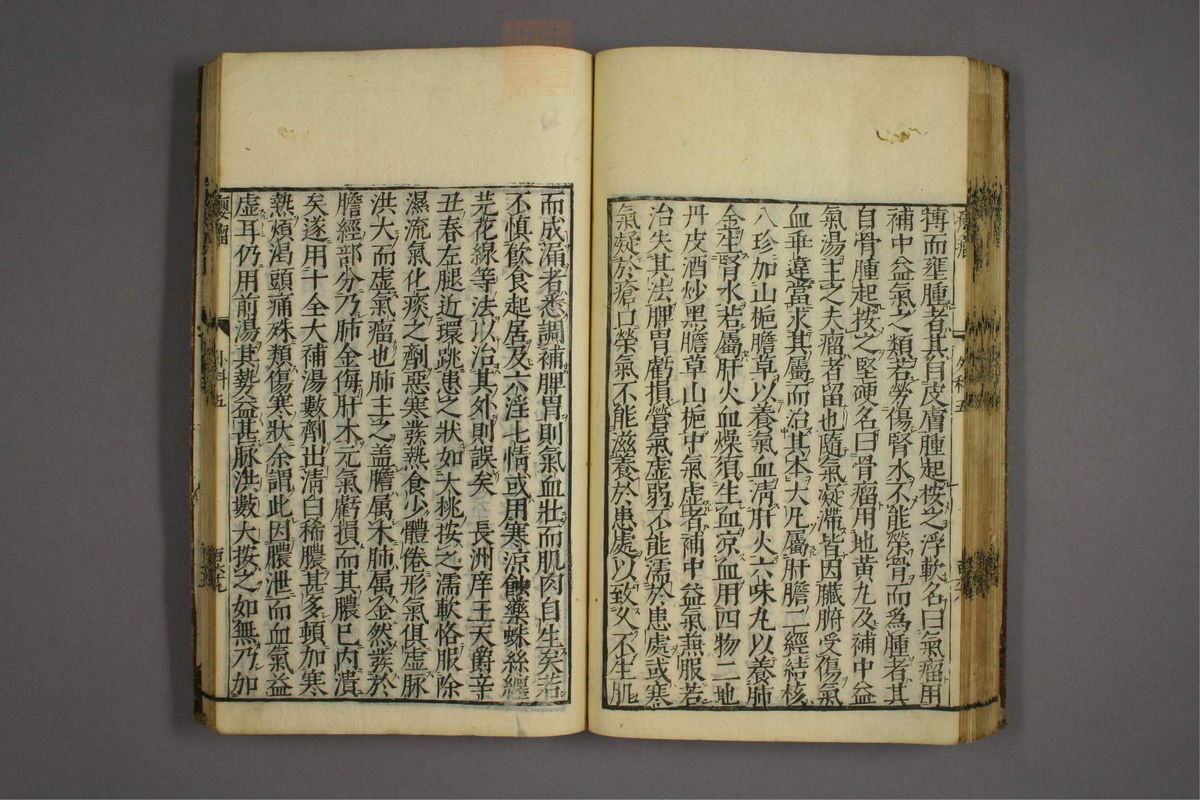 搏而壅腫者其自皮膚腫起按之浮軟名曰氣瘤用
補中益氣之類若勞傷腎水不能榮骨而爲腫者其
自骨腫起按之堅硬名曰骨瘤用地黄丸及補中益
氣湯主之夫瘤者留也隨氣凝滯皆因臟腑受傷氣
血乖違當求其屬而治其本大凡屬肝膽二經結核
八珍加山梔膽草以養氣血淸肝火六味丸以養肺
金生腎水若屬肝火血燥須生血凉血用四物二地
丹皮酒炒黑膽草山梔中氣虛者補中益氣兼服若
治失其法脾胃虧損營氣虛弱不能濡於患處或寒
氣凝於瘡口榮氣不能滋養於患處以致久不生肌
而成漏者悉調補脾胃則氣血壯而肌肉自生矣若
不慎飮食起居及六淫七情或用寒涼蝕藥蛛絲纏
芫花線等法以治其外則誤矣 長洲庠王天爵辛
丑春左腿近環跳患之狀如大桃按之濡軟恪服除
濕流氣化痰之劑惡寒發熱食少體倦形氣俱虛脈
洪大而虛氣瘤也肺主之盖膽属木肺属金然發於
膽經部分乃肺金侮肝木元氣虧損而其膿已内潰
矣遂用十全大補湯數劑出清白稀膿甚多頓加寒
熱煩渴頭痛殊類傷寒狀余謂此因膿泄而血氣益
虛耳仍用前湯其勢益甚脈洪數大按之如無乃加
癭瘤
外科五